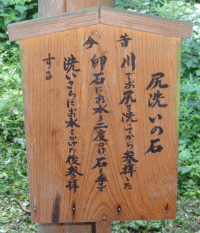 尻洗いの石
昔 川でお尻を洗ってから参拝した
今 卵石にお水を二度かけ石を两手
洗いさらにお水をかけた後参拝
する